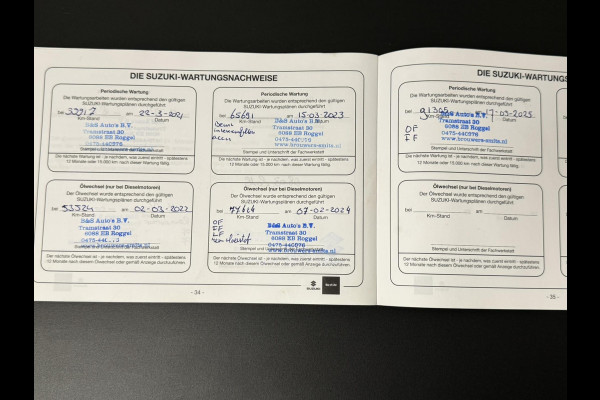 DIE SUZUKI-WARTUNGSNACHWEISE
Periodische Wartung
Die Wartungsarbeiten wurden entsprechend den gültigen
SUZUKI-Wartungsplänen durchgeführt
bei 33917 am 22-3-2021
Km-Stand Datum
B&G Auto's B.V.
Tramstraat 30
6088 EB Roggel
Stempel und Unterschrift der Fachwerkstatt
Die nächste Wartung ist - je nachdem, was zuerst eintritt - spätestens
12 Monate oder 15.000 km nach dieser Wartung fällig.
Periodische Wartung
Die Wartungsarbeiten wurden entsprechend den gültigen
SUZUKI-Wartungsplänen durchgeführt
bei 65691 am 15-03-2023
Km-Stand Datum
B&G Auto's B.V.
Tramstraat 30
6088 EB Roggel
0475-440976
Stempel und Unterschrift der Fachwerkstatt
Die nächste Wartung ist - je nachdem, was zuerst eintritt - spätestens
12 Monate oder 15.000 km nach dieser Wartung fällig.
Ölwechsel (nur bei Dieselmotoren)
Der Ölwechsel wurde entsprechend den gültigen
SUZUKI-Wartungsplänen durchgeführt
bei 53524 am 02-03-2022
Km-Stand Datum
B&G Auto's B.V.
Tramstraat 30
6088 EB Roggel
Stempel und Unterschrift der Fachwerkstatt
Der nächste Ölwechsel ist - je nachdem, was zuerst eintritt - spätestens
12 Monate nach diesem Ölwechsel oder gemäß Anzeige durchzuführen.
Ölwechsel (nur bei Dieselmotoren)
Der Ölwechsel wurde entsprechend den gültigen
SUZUKI-Wartungsplänen durchgeführt
bei am 07-02-2024
OF
Km-Stand Datum
B&G Auto's B.V.
Tramstraat 30
6088 EB Roggel
0475-440976
Stempel und Unterschrift der Fachwerkstatt
Der nächste Ölwechsel ist - je nachdem, was zuerst eintritt - spätestens
12 Monate nach diesem Ölwechsel oder gemäß Anzeige durchzuführen.
- 34 -
SUZUKI
DIE SUZUKI-WARTUNGS
Periodische Wartung
Die Wartungsarbeiten wurden entsprechend den gültigen
SUZUKI-Wartungsplänen durchgeführt
bei 91365 17-03-2025
Km-Stand Datum
B&G Auto's B.V.
Tramstraat 30
OF
6088 EB Roggel
IF
0475-440976
Stempel und Unterschrift der Fachwerkstatt
Die nächste Wartung ist - je nachdem, was zuerst eintritt - spätestens
12 Monate oder 15.000 km nach dieser Wartung fällig.
Ölwechsel (nur bei Dieselmotoren)
Der Ölwechsel wurde entsprechend den gültigen
SUZUKI-Wartungsplänen durchgeführt
bei am
Km-Stand Datum
Stempel und Unterschrift der Fachwerkstatt
Der nächste Ölwechsel ist - je nachdem, was zuerst eintritt - spätestens
12 Monate nach diesem Ölwechsel oder gemäß Anzeige durchzuführen.
- 35 -